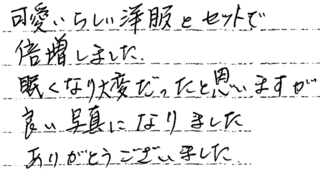 可愛いらしい洋服とセットで
倍増しました.
眠くなり大変だったと思いますが
良い写真になりました
ありがとうございました